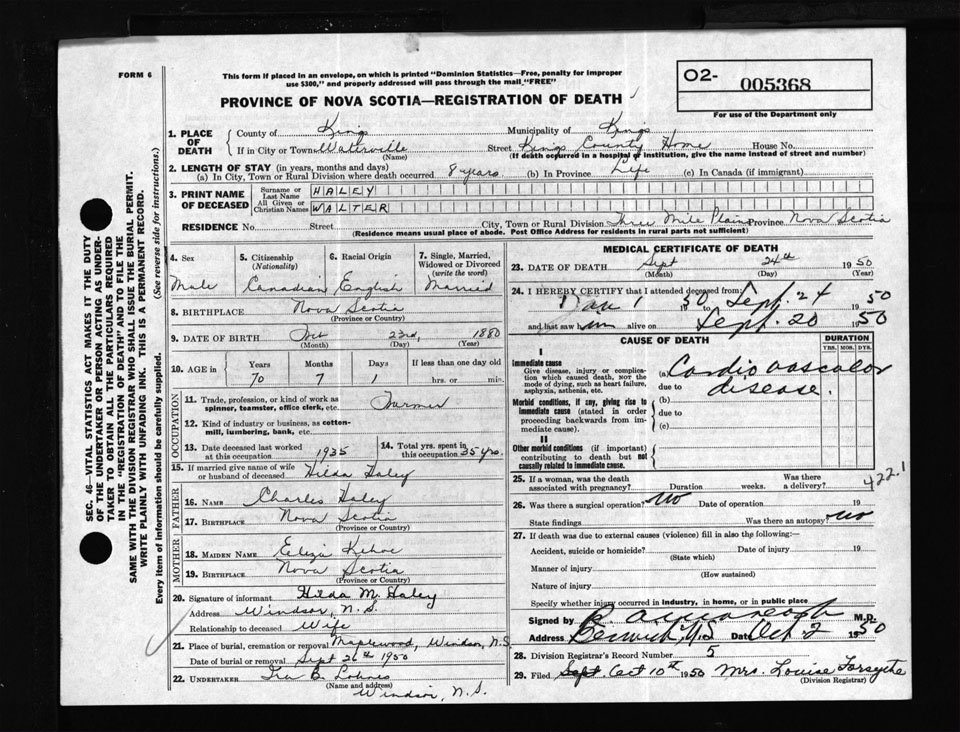 FORM 6
This form if placed in an envelope, on which is printed "Dominion Statistics—Free, penalty for improper
use $300," and properly addressed will pass through the mail "FREE"
PROVINCE OF NOVA SCOTIA—REGISTRATION OF DEATH
O2- 005368
For use of the Department only
SEC. 46- VITAL STATISTICS ACT MAKES IT THE DUTY
OF THE UNDERTAKER OR PERSON ACTING AS UNDER-
TAKER TO OBTAIN ALL THE PARTICULARS REQUIRED
IN THE "REGISTRATION OF DEATH" AND TO FILE THE
SAME WITH THE DIVISION REGISTRAR WHO SHALL ISSUE THE BURIAL PERMIT.
WRITE PLAINLY WITH UNFADING INK. THIS IS A PERMANENT RECORD.
Every item of information should be carefully supplied. (See reverse side for instructions.)
1. PLACE OF DEATH County of Kings Municipality of Kings
If in City or Town Waterville Street Kings County Home House No.
(Name) (If death occurred in a hospital or institution, give the name instead of street and number)
2. LENGTH OF STAY (in years, months and days)
(a) In City, Town or Rural Division where death occurred 8 years. (b) In Province Life (c) In Canada (if immigrant)
3. PRINT NAME OF DECEASED Surname or Last Name HALEY
All Given or Christian Names WALTER
RESIDENCE No. Street City, Town or Rural Division Three Mile Plain Province Nova Scotia
(Residence means usual place of abode. Post Office Address for residents in rural parts not sufficient)
4. Sex Male
5. Citizenship (Nationality) Canadian
6. Racial Origin English
7. Single, Married, Widowed or Divorced (write the word) Married
8. BIRTHPLACE Nova Scotia
(Province or Country)
9. DATE OF BIRTH 23rd, 1880
(Month) (Day) (Year)
10. AGE in Years Months Days If less than one day old
70 7 1 hrs. or min.
OCCUPATION
11. Trade, profession, or kind of work as
spinner, teamster, office clerk, etc. Farmer
12. Kind of industry or business, as cotton-
mill, lumbering, bank, etc.
13. Date deceased last worked at this occupation 1935
14. Total yrs. spent in this occupation 35 yrs.
15. If married give name of wife or husband of deceased Hilda Haley
FATHER
16. NAME Charles Haley
17. BIRTHPLACE Nova Scotia
(Province or Country)
MOTHER
18. MAIDEN NAME Eliza Kehoe
19. BIRTHPLACE Nova Scotia
(Province or Country)
20. Signature of informant Hilda M. Haley
Address Windsor, N.S.
Relationship to deceased Wife
21. Place of burial, cremation or removal Maplewood, Windsor, N.S.
Date of burial or removal Sept 26th 1950
22. UNDERTAKER Ira B. Lohnes
(Name and address)
Windsor, N.S.
MEDICAL CERTIFICATE OF DEATH
23. DATE OF DEATH Sept 24th 1950
(Month) (Day) (Year)
24. I HEREBY CERTIFY that I attended deceased from:
Jan 1 1950 to Sept. 24 1950
and last saw him alive on Sept. 20 1950
CAUSE OF DEATH DURATION
YRS. MOS. DYS.
I
Immediate cause
Give disease, injury or complica-
tion which caused death, not the
mode of dying, such as heart failure,
asphyxia, asthenia, etc.
(a) Cardio vascular
due to disease.
Morbid conditions, if any, giving rise to
immediate cause (stated in order
proceeding backwards from im-
mediate cause).
(b)
due to
(c)
II
Other morbid conditions (if important)
contributing to death but not
causally related to immediate cause.
422.1
25. If a woman, was the death associated with pregnancy? Duration weeks. Was there a delivery?
26. Was there a surgical operation? No Date of operation 19
State findings Was there an autopsy? No
27. If death was due to external causes (violence) fill in also the following:—
Accident, suicide or homicide? Date of injury 19
(State which)
Manner of injury
(How sustained)
Nature of injury
Specify whether injury occurred in industry, in home, or in public place
Signed by M.D.
Address Berwick, N.S. Date Oct. 2 1950
28. Division Registrar's Record Number 5
29. Filed Sept Oct 10th 1950 Mrs. Louise Forsythe
(Division Registrar)